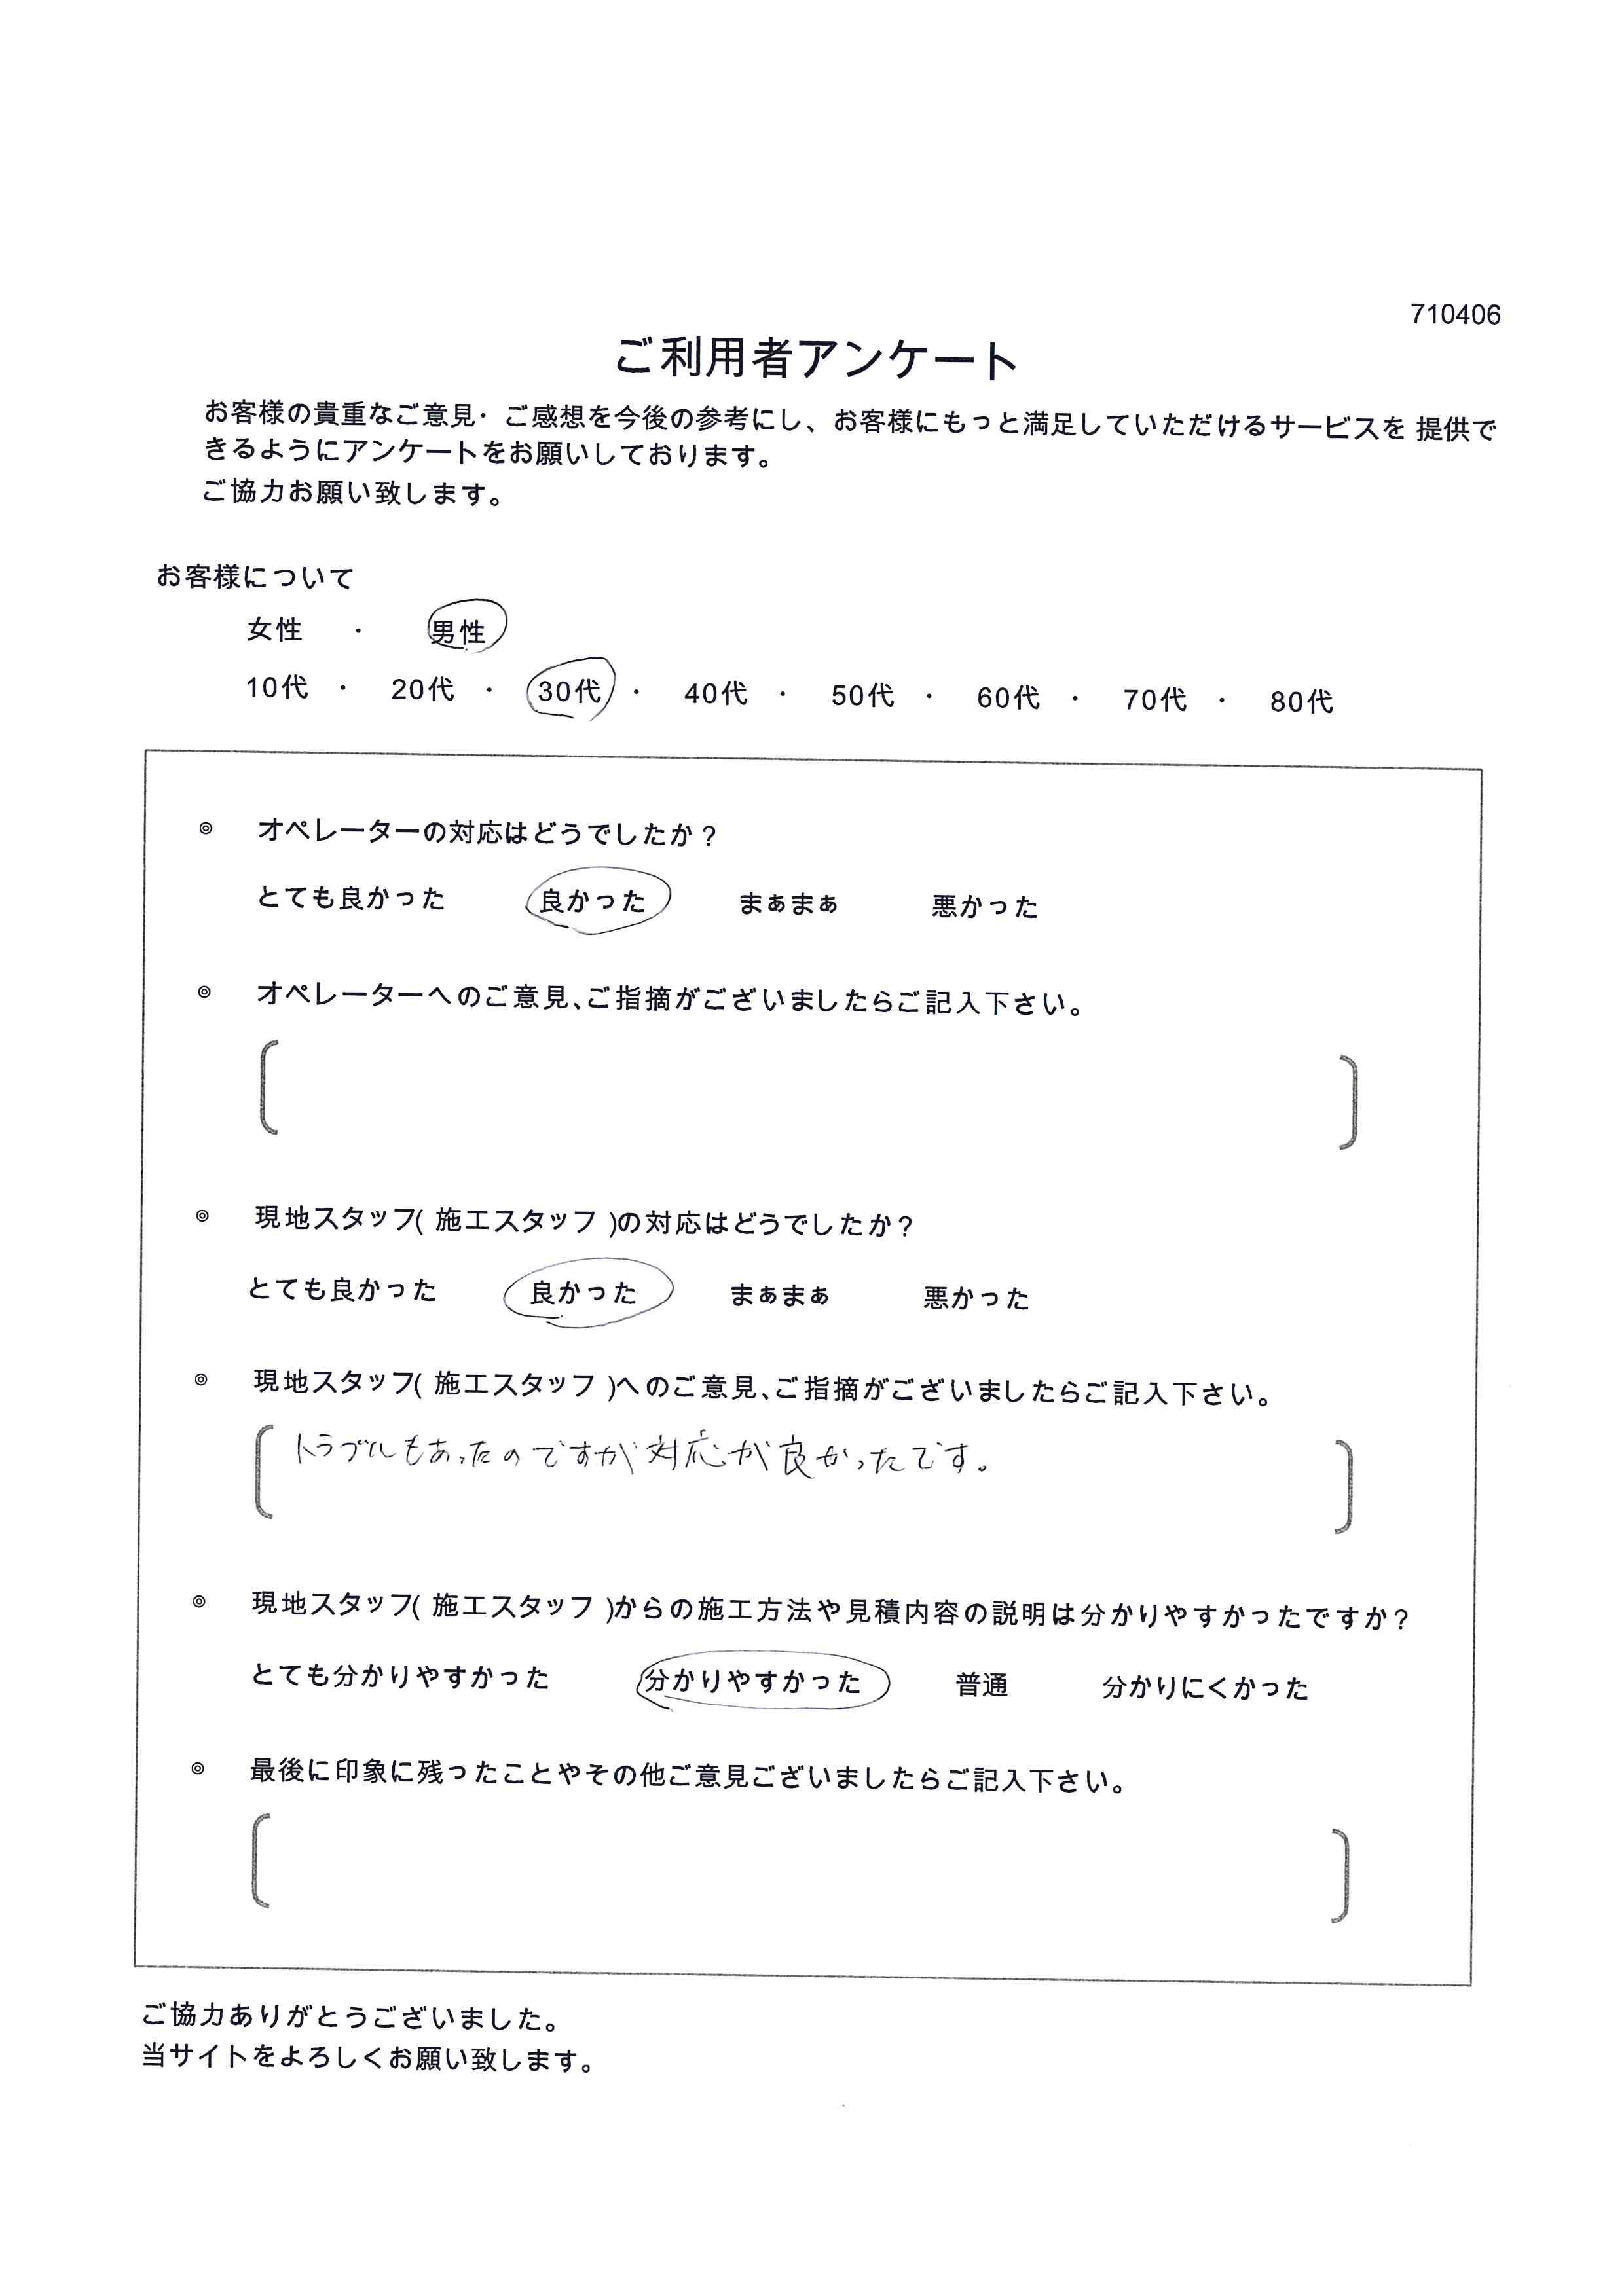 710406
ご利用者アンケート
お客様の貴重なご意見・ご感想を今後の参考にし、お客様にもっと満足していただけるサービスを 提供で
きるようにアンケートをお願いしております。
ご協力お願い致します。
お客様について
女性 ・ 男性
10代 ・ 20代 ・ 30代 ・ 40代 ・ 50代 ・ 60代 ・ 70代 ・ 80代
◎ オペレーターの対応はどうでしたか?
とても良かった 良かった まぁまぁ 悪かった
◎ オペレーターへのご意見、ご指摘がございましたらご記入下さい。
◎ 現地スタッフ( 施工スタッフ )の対応はどうでしたか?
とても良かった 良かった まぁまぁ 悪かった
◎ 現地スタッフ( 施工スタッフ )へのご意見、ご指摘がございましたらご記入下さい。
トラブルもあったのですが対応が良かったです。
◎ 現地スタッフ( 施工スタッフ )からの施工方法や見積内容の説明は分かりやすかったですか?
とても分かりやすかった 分かりやすかった 普通 分かりにくかった
◎ 最後に印象に残ったことやその他ご意見ございましたらご記入下さい。
ご協力ありがとうございました。
当サイトをよろしくお願い致します。